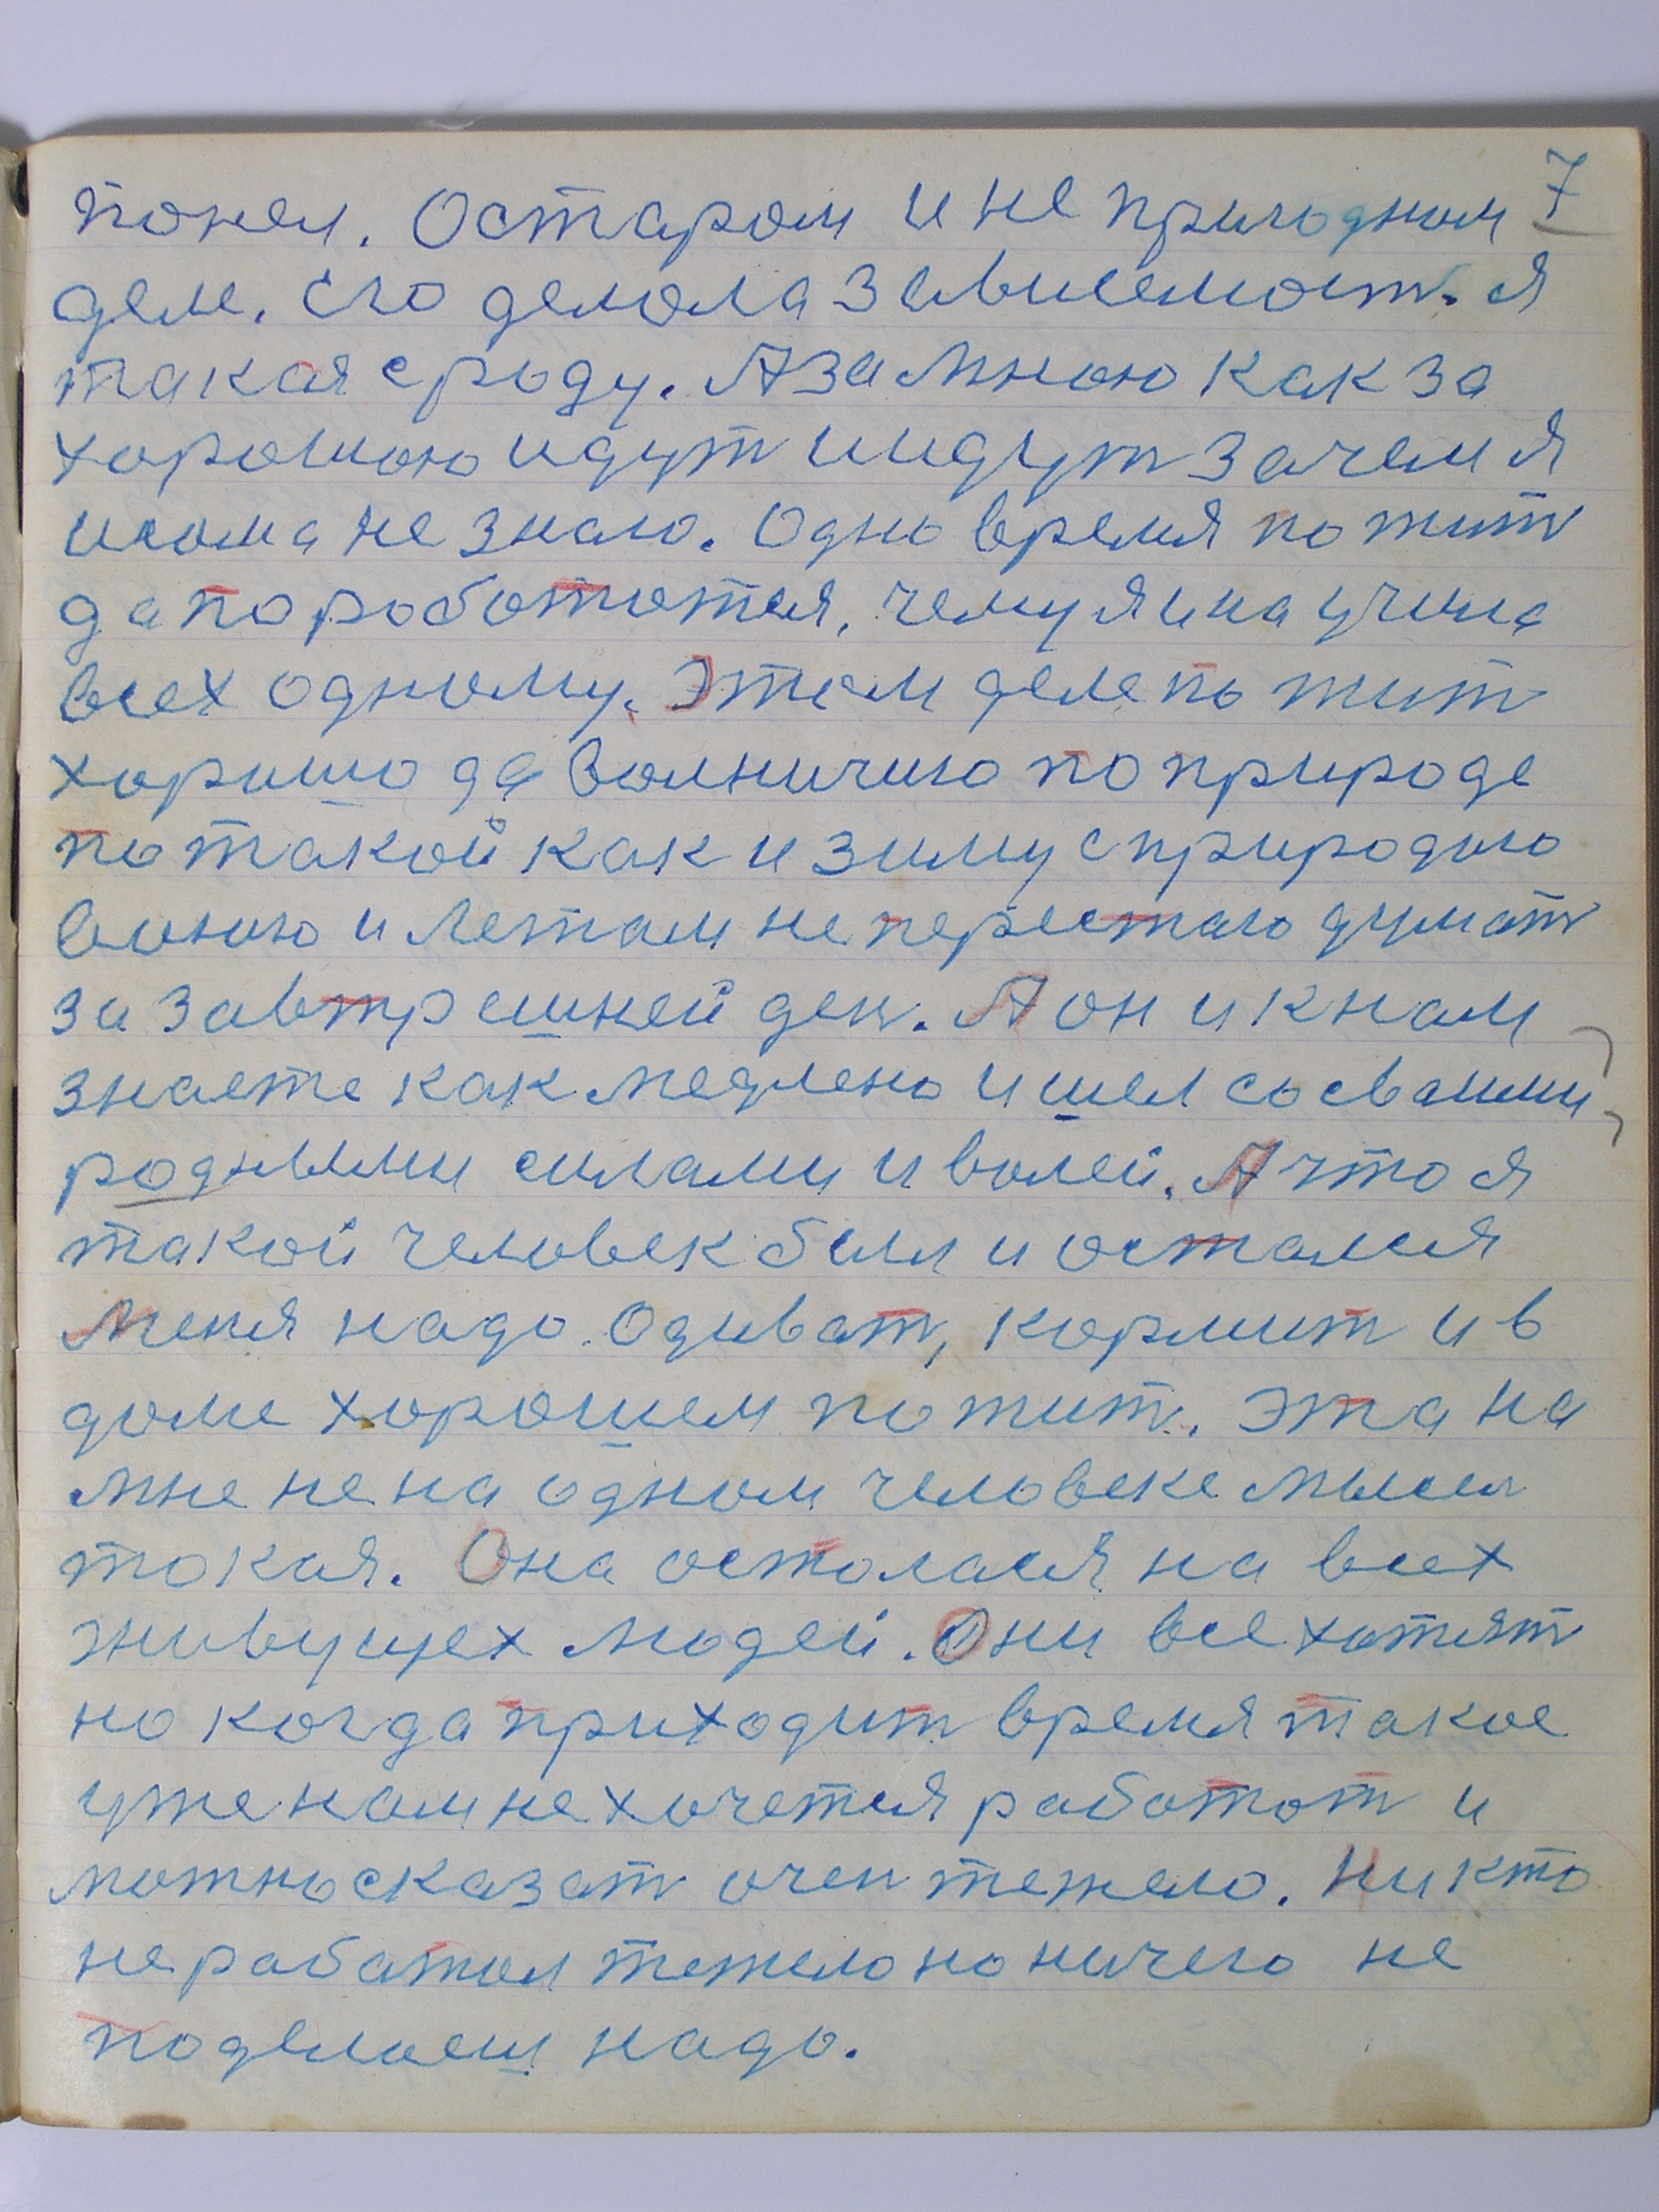 7
понял. Остаром и не пригодном
деле. Его делола зависемост. я
такая сроду. А за мною как за
хорошою идут и идут зачем я
и сома не знаю. Одно время пожит
да поработотся, чему я и научила
всех одному. Этом деле пожит
хорошо да волничию по природе
по такой как и зиму с природою
воюю и летом не перестаю думат
за завтрешней ден. А он и к нам
знаете как медлено и шел со своими
родными силами и волей. А что я
такой человек был и остался
меня надо одиват, кормит и в
доме хорошем пожит. Эта на
мне не на одном человеке мысел
токая. Она осталася на всех
живущех людей. Они все хотят
но когда приходит время такое
уже нам не хочется работот и
можно сказат очен тежело. Никто
не работал тежело но ничего не
поделоеш надо.